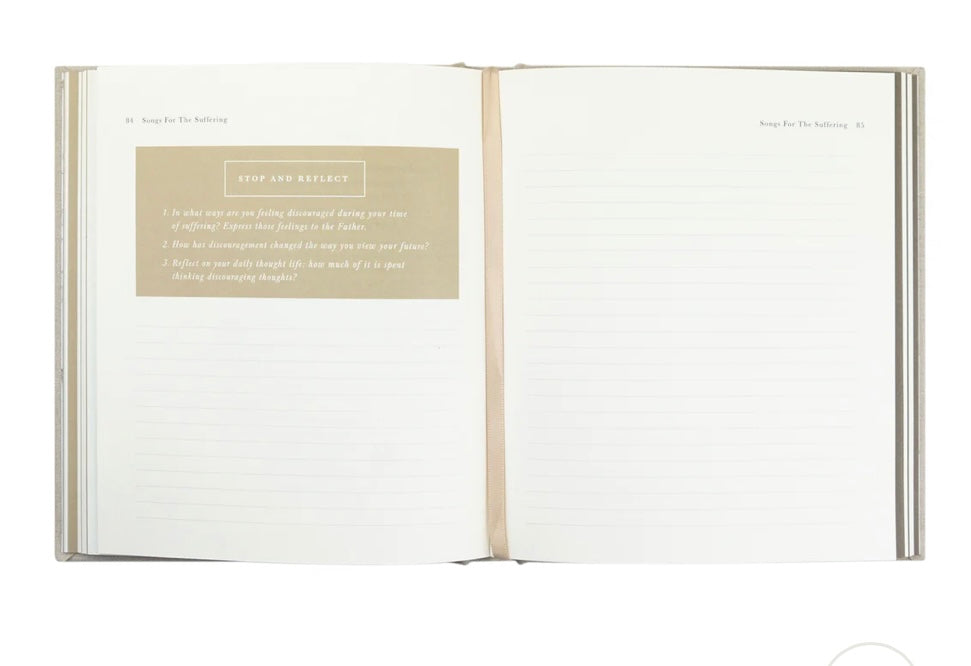 84 Songs For The Suffering
STOP AND REFLECT
1. In what ways are you feeling discouraged during your time
of suffering? Express those feelings to the Father.
2. How has discouragement changed the way you view your future?
3. Reflect on your daily thought life; how much of it is spent
thinking discouraging thoughts?
Songs For The Suffering 85